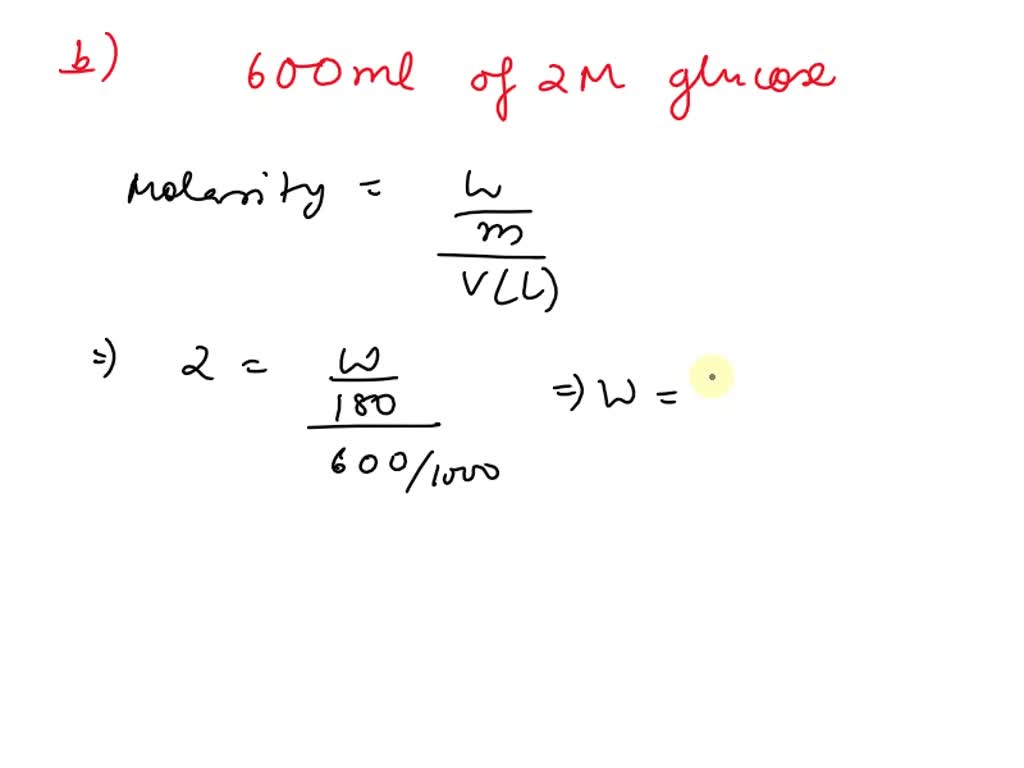 b) 600ml of 2M glucose
Molarity = W/m / V(L)
=) 2 = W/180 / 600/1000 =) W =